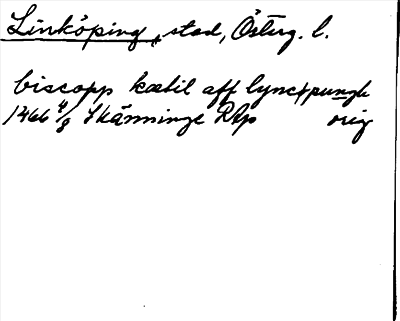 Linköping, stad, Österg. l.
biscopp kætil aff lyncpungh
1466 4/8 Skänninge RAp orig